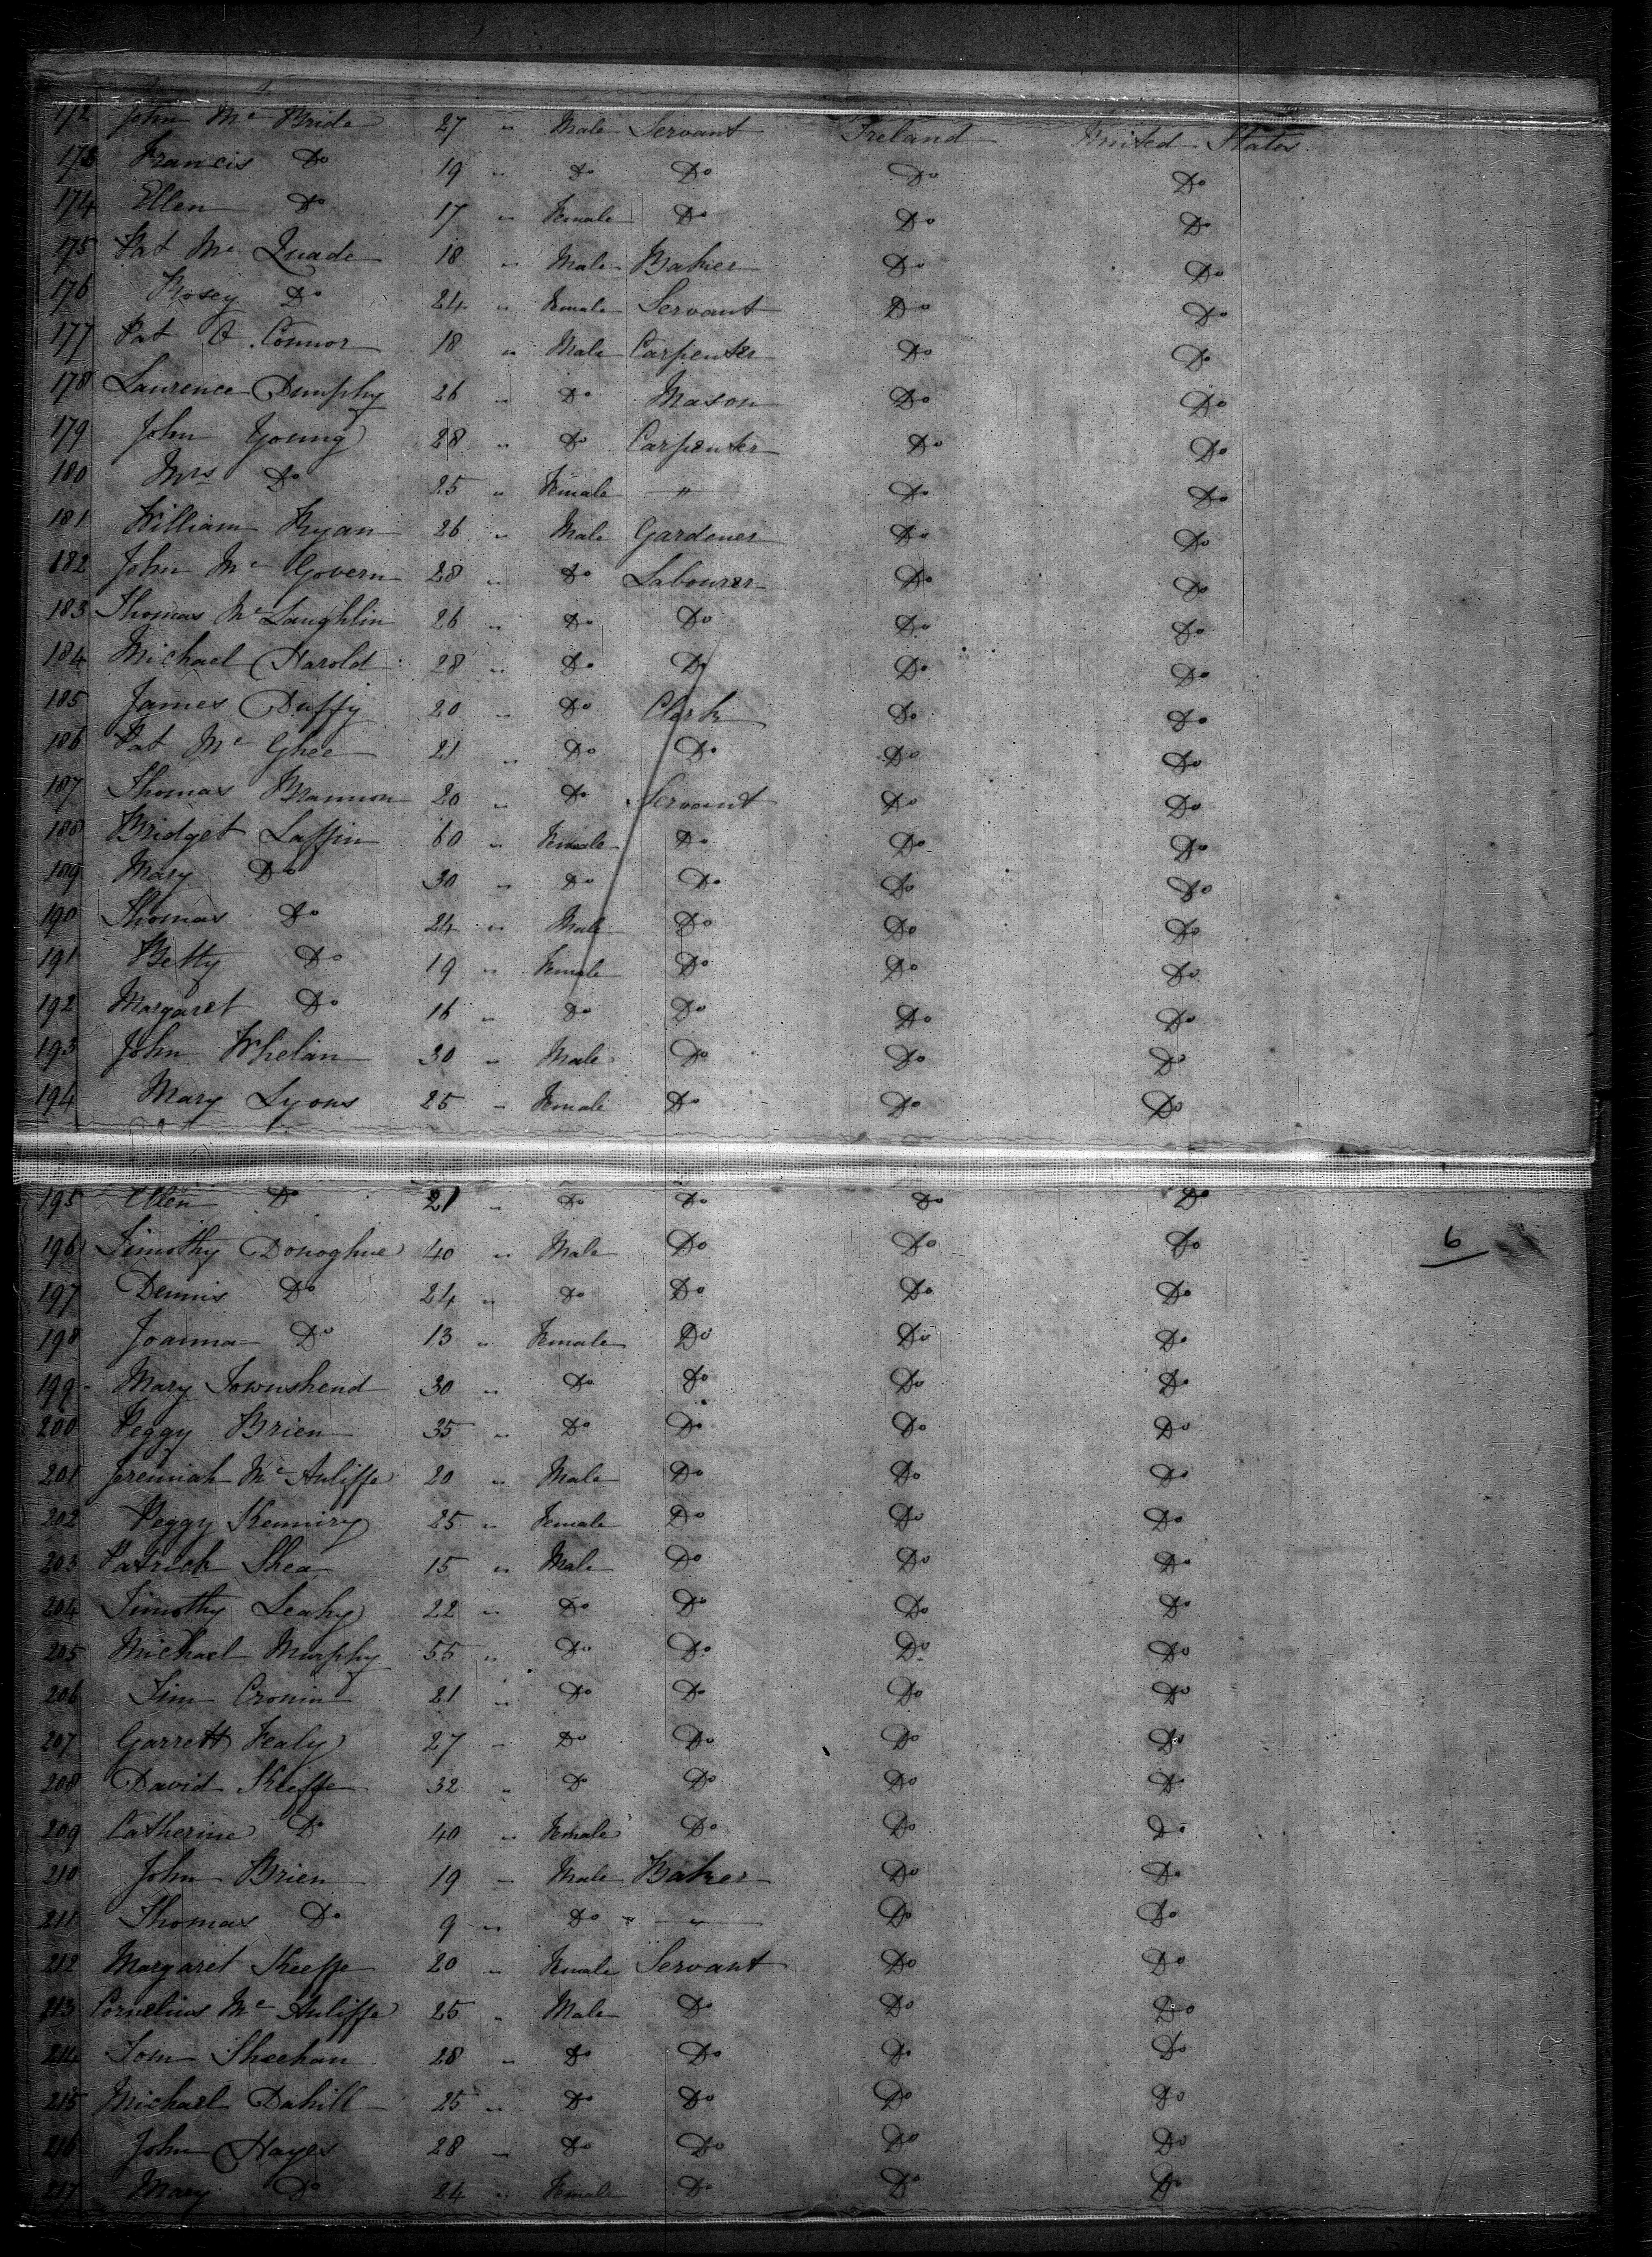 172 John Mc Bride 27 " Male Servant Ireland United States
173 Francis Do 19 " Do Do Do Do
174 Ellen Do 17 " Female Do Do Do
175 Pat Mc Quade 18 " Male Baker Do Do
176 Rosey Do 24 " Female Servant Do Do
177 Pat O. Connor 18 " Male Carpenter Do Do
178 Laurence Dunphy 26 " Do Mason Do Do
179 John Young 28 " Do Carpenter Do Do
180 Mrs Do 25 " Female " Do Do
181 William Ryan 26 " Male Gardener Do Do
182 John Mc Govern 28 " Do Labourer Do Do
183 Thomas Mc Laughlin 26 " Do Do Do Do
184 Michael Harold 28 " Do Do Do Do
185 James Duffy 20 " Do Clerk Do Do
186 Pat Mc Ghee 21 " Do Do Do Do
187 Thomas 20 " Do Servant Do Do
188 Bridget Laffin 60 " Female Do Do Do
189 Mary Do 30 " Do Do Do Do
190 Thomas Do 24 " Male Do Do Do
191 Betty Do 19 " Female Do Do Do
192 Margaret Do 16 " Do Do Do Do
193 John Whelan 30 " Male Do Do Do
194 Mary Lyons 25 " Female Do Do Do
195 Ellen Do 21 " Do Do Do Do
196 Timothy Donoghue 40 " Male Do Do Do 6
197 Dennis Do 24 " Do Do Do Do
198 Joanna Do 13 " Female Do Do Do
199 Mary Townshend 30 " Do Do Do Do
200 Peggy Brien 35 " Do Do Do Do
201 Jeremiah Mc Auliffe 20 " Male Do Do Do
202 Peggy Kenniry 25 " Female Do Do Do
203 Patrick Shea 15 " Male Do Do Do
204 Timothy Leahy 22 " Do Do Do Do
205 Michael Murphy 55 " Do Do Do Do
206 Tim Cronin 21 " Do Do Do Do
207 Garrett Fealy 27 " Do Do Do Do
208 David Keeffe 32 " Do Do Do Do
209 Catherine Do 40 " Female Do Do Do
210 John Brien 19 " Male Baker Do Do
211 Thomas Do 9 " Do " " Do Do
212 Margaret Keeffe 20 " Female Servant Do Do
213 Cornelius Mc Auliffe 25 " Male Do Do Do
214 Tom Sheehan 28 " Do Do Do Do
215 Michael Dahill 25 " Do Do Do Do
216 John Hayes 28 " Do Do Do Do
217 Mary Do 24 " Female Do Do Do